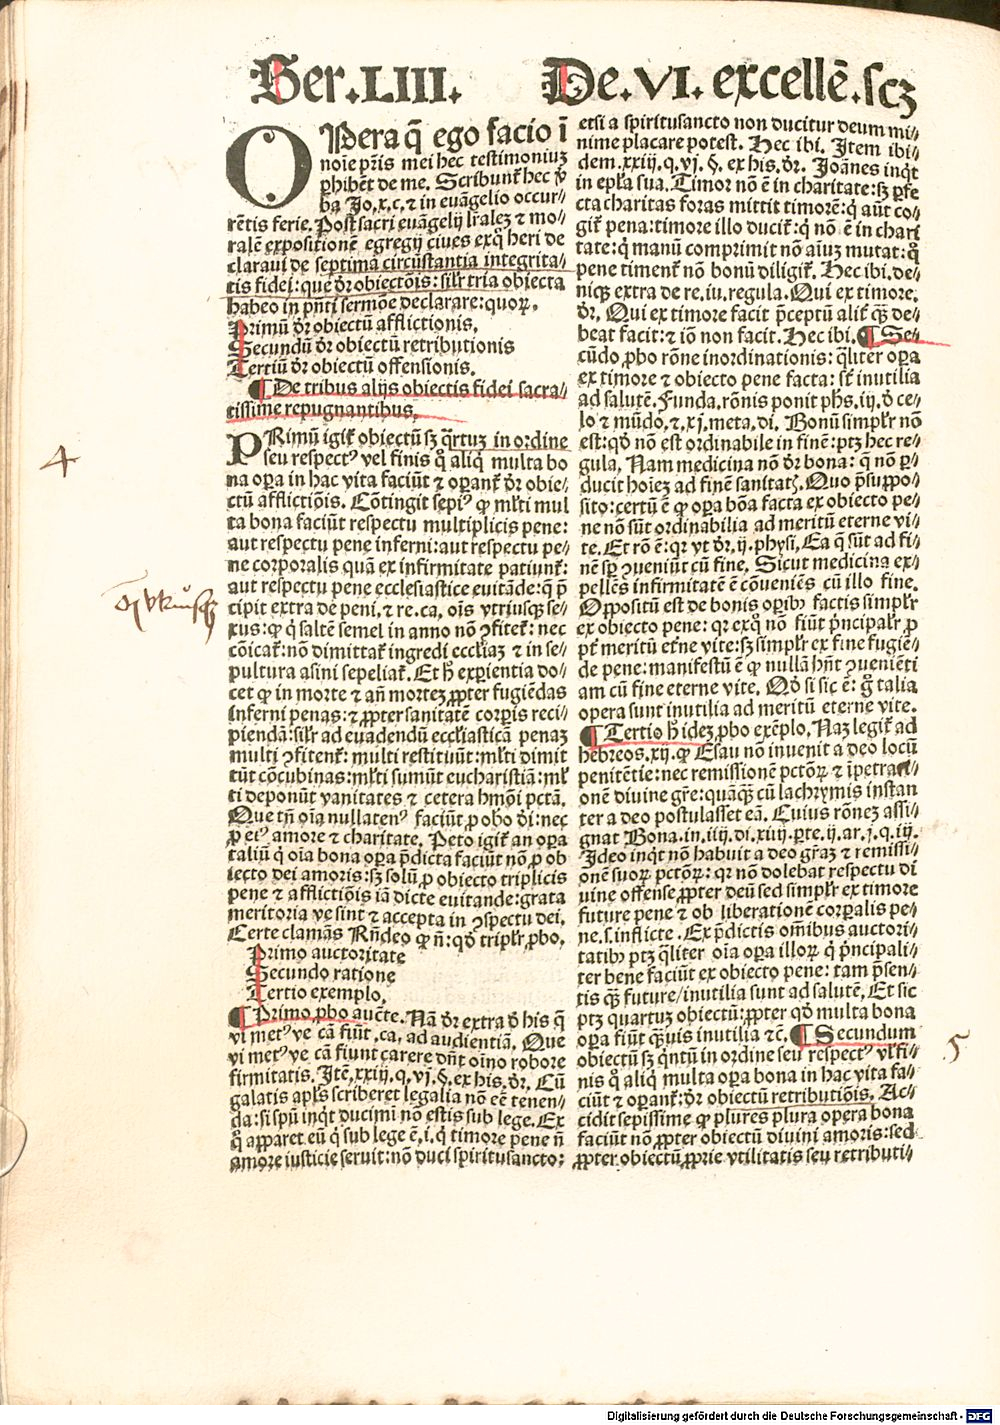 Ser.LIII. De.VI.excellē.scꝫ
OPera q̄ ego facio ī
noīe pr̄is mei hec testimoniuꝫ
ꝑhibēt de me. Scribunt̄ hec ꝟ
ba Jo.x.c. ⁊ in euāgelio occur⸗
rētis ferie. Post sacri euāgelij lr̄alez ⁊ mo⸗
ralē expositionē egregij ciues exꝗ̊ heri de
claraui de septima circūstantia integrita⸗
tis fidei: que dr̄ obiectōis: silr̄ tria obiecta
habeo in pn̄ti sermōe declarare: quoꝝ.
Primū dr̄ obiectū afflictionis.
Secundū dr̄ obiectū retributionis
Tertiū dr̄ obiectū offensionis.
¶ De tribus alijs obiectis fidei sacra⸗
tissime repugnantibus.
PRimū igit̄ obiectū sꝫ q̈rtuꝫ in ordine
seu respectꝰ vel finis ꝗ̊ aliq̇ multa bo
na oꝑa in hac vita faciūt ⁊ oꝑant̄ dr̄ obie⸗
ctū afflictiōis. Cōtingit sepiꝰ ꝙ ml̄ti mul
ta bona faciūt respectu multiplicis pene:
aut respectu pene inferni: aut respectu pe⸗
ne corporalis quā ex infirmitate patiunt̄:
aut respectu pene ecclesiastice euitāde: q̄ p̄
cipit extra de peni. ⁊ re. ca. oīs vtriusqꝫ se⸗
xus: ꝙ q̇ saltē semel in anno nō ꝯfitet̄: nec
cōicat̄: nō dimittat̄ ingredi eccl̄iaꝫ ⁊ in se⸗
pultura asini sepeliat̄. Et h̄ experientia do⸗
cet ꝙ in morte ⁊ an̄ mortez ꝓpter fugiēdas
inferni penas: ⁊ ꝓpter sanitatē corꝑis reci⸗
piendā: silr̄ ad euadendū eccl̄iasticā penaꝫ
multi ꝯfitent̄: multi restituūt: ml̄ti dimit
tūt cōcubinas: ml̄ti sumūt eucharistiā: ml̄
ti deponūt vanitates ⁊ cetera hmōi pctā.
Que tn̄ oīa nullatenꝰ faciūt ꝓ obo dī: nec
ꝓ eiꝰ amore ⁊ charitate. Peto igit̄ an oꝑa
taliū q̇ oīa bona oꝑa p̄dicta faciūt nō ꝓ ob
iecto dei amoris: sꝫ solū ꝓ obiecto triplicis
pene ⁊ afflictiōis iā dicte euitande: grata
meritoria ve sint ⁊ accepta in ꝯspectu dei.
Certe clamās Rn̄deo ꝙ n̄: qd̓ triplr̄ ꝓbo.
Primo auctoritate
Secundo ratione
Tertio exemplo.
¶ Primo ꝓbo aucte. Nā dr̄ extra d̓ his q̄
vi metꝰ ve cā fiūt. ca. ad audientiā. Que
vi metꝰ ve cā fiunt carere dn̄t oīno robore
firmitatis. Itē .xxiij.q.vj.§. ex his. dr̄. Cū
galatis apl̄s scriberet legalia nō eē tenen⸗
da: si spū inq̇t ducimī nō estis sub lege. Ex
ꝗ̊ apparet eū q̇ sub lege ē. i. q̇ timore pene n̄
amore iusticie seruit: nō duci spiritusancto:
etsi a spiritusancto non ducitur deum mi⸗
nime placare potest. Hec ibi. Item ibi⸗
dem.xxiij.q.vj.§. ex his. dr̄. Joānes inq̇t
in epl̄a sua. Timor nō ē in charitate: sꝫ ꝑfe
cta charitas foras mittit timorē: q̇ aūt co⸗
git̄ pena: timore illo ducit̄: q̇ nō ē in chari
tate: q̇ manū comprimit nō aīuꝫ mutat: ꝗ̊
pene timent̄ nō bonū diligit̄. Hec ibi. de⸗
niqꝫ extra de re. iu. regula. Qui ex timore.
dr̄. Qui ex timore facit p̄ceptū alit̄ qꝫ̄ de⸗
beat facit: ⁊ iō non facit. Hec ibi. ¶ Se⸗
cūdo ꝓbo rōne inordinationis: q̈liter oꝑa
ex timore ⁊ obiecto pene facta: st̄ inutilia
ad salutē. Funda. rōnis ponit phs.iij. d̓ ce⸗
lo ⁊ mūdo. ⁊ .xj. meta. di. Bonū simplr̄ nō
est: qd̓ nō est ordinabile in finē: ptꝫ hec re⸗
gula. Nam medicina nō dr̄ bona: q̄ nō ꝑ⸗
ducit hoīez ad finē sanitatꝭ. Quo p̄suppo⸗
sito: certū ē ꝙ oꝑa bōa facta ex obiecto pe⸗
ne nō sūt ordinabilia ad meritū eterne vi⸗
te. Et rō ē: qꝛ vt dr̄.ij. physi. Ea q̄ sūt ad fi⸗
nē sꝑ ꝯueniūt cū fine. Sicut medicina ex⸗
pellēs infirmitatē ē cōueniēs cū illo fine.
Oppositū est de bonis oꝑibꝰ factis simplr̄
ex obiecto pene: qꝛ exꝗ̊ nō fiūt p̄ncipalr̄ ꝓ
pt̄ meritū et̄ne vite: sꝫ simplr̄ ex fine fugiē⸗
de pene: manifestū ē ꝙ nullā hn̄t ꝯueniēti
am cū fine eterne vite. Qd̓ si sic ē: g̊ talia
opera sunt inutilia ad meritū eterne vite.
¶ Tertio h̄ ideꝫ ꝓbo exēplo. Naꝫ legit̄ ad
hebreos.xij. ꝙ Esau nō inuenit a deo locū
penitētie: nec remissionē pctōꝝ ⁊ īpetrati⸗
onē diuine gr̄e: quāqꝫ cū lachrymis instan
ter a deo postulasset eā. Cuius rōneꝫ assi⸗
gnat Bona. in.iiij.di.xiiij.ꝑte.ij.ar.j.q.iij.
Ideo inq̇t nō habuit a deo gr̄aꝫ ⁊ remissi⸗
onē suoꝝ pctōꝝ: qꝛ nō dolebat respectu di
uine offense ꝓpter deū sed simplr̄ ex timore
future pene ⁊ ob liberationē corꝑalis pe⸗
ne.s. inflicte. Ex p̄dictis om̄ibus auctori⸗
tatibꝰ ptꝫ q̈liter oīa oꝑa illoꝝ q̇ p̄ncipali⸗
ter bene faciūt ex obiecto pene: tam p̄sen⸗
tis qꝫ̄ future/inutilia sunt ad salutē. Et sic
ptꝫ quartuꝫ obiectū: ꝓpter qd̓ multa bona
oꝑa fiūt qꝫ̄uis inutilia ⁊c̄. ¶ Secundum
obiectū sꝫ q̇ntū in ordine seu respectꝰ vl̄ fi⸗
nis ꝗ̊ aliq̇ multa oꝑa bona in hac vita fa⸗
ciūt ⁊ oꝑant̄: dr̄ obiectū retributiōis. Ac⸗
cidit sepissime ꝙ plures plura opera bona
faciūt nō ꝓpter obiectū diuini amoris: sed
ꝓpter obiectū ꝓprie vtilitatis seu retributi⸗
4
5
Digitalisierung gefördert durch die Deutsche Forschungsgemeinschaft - DFG